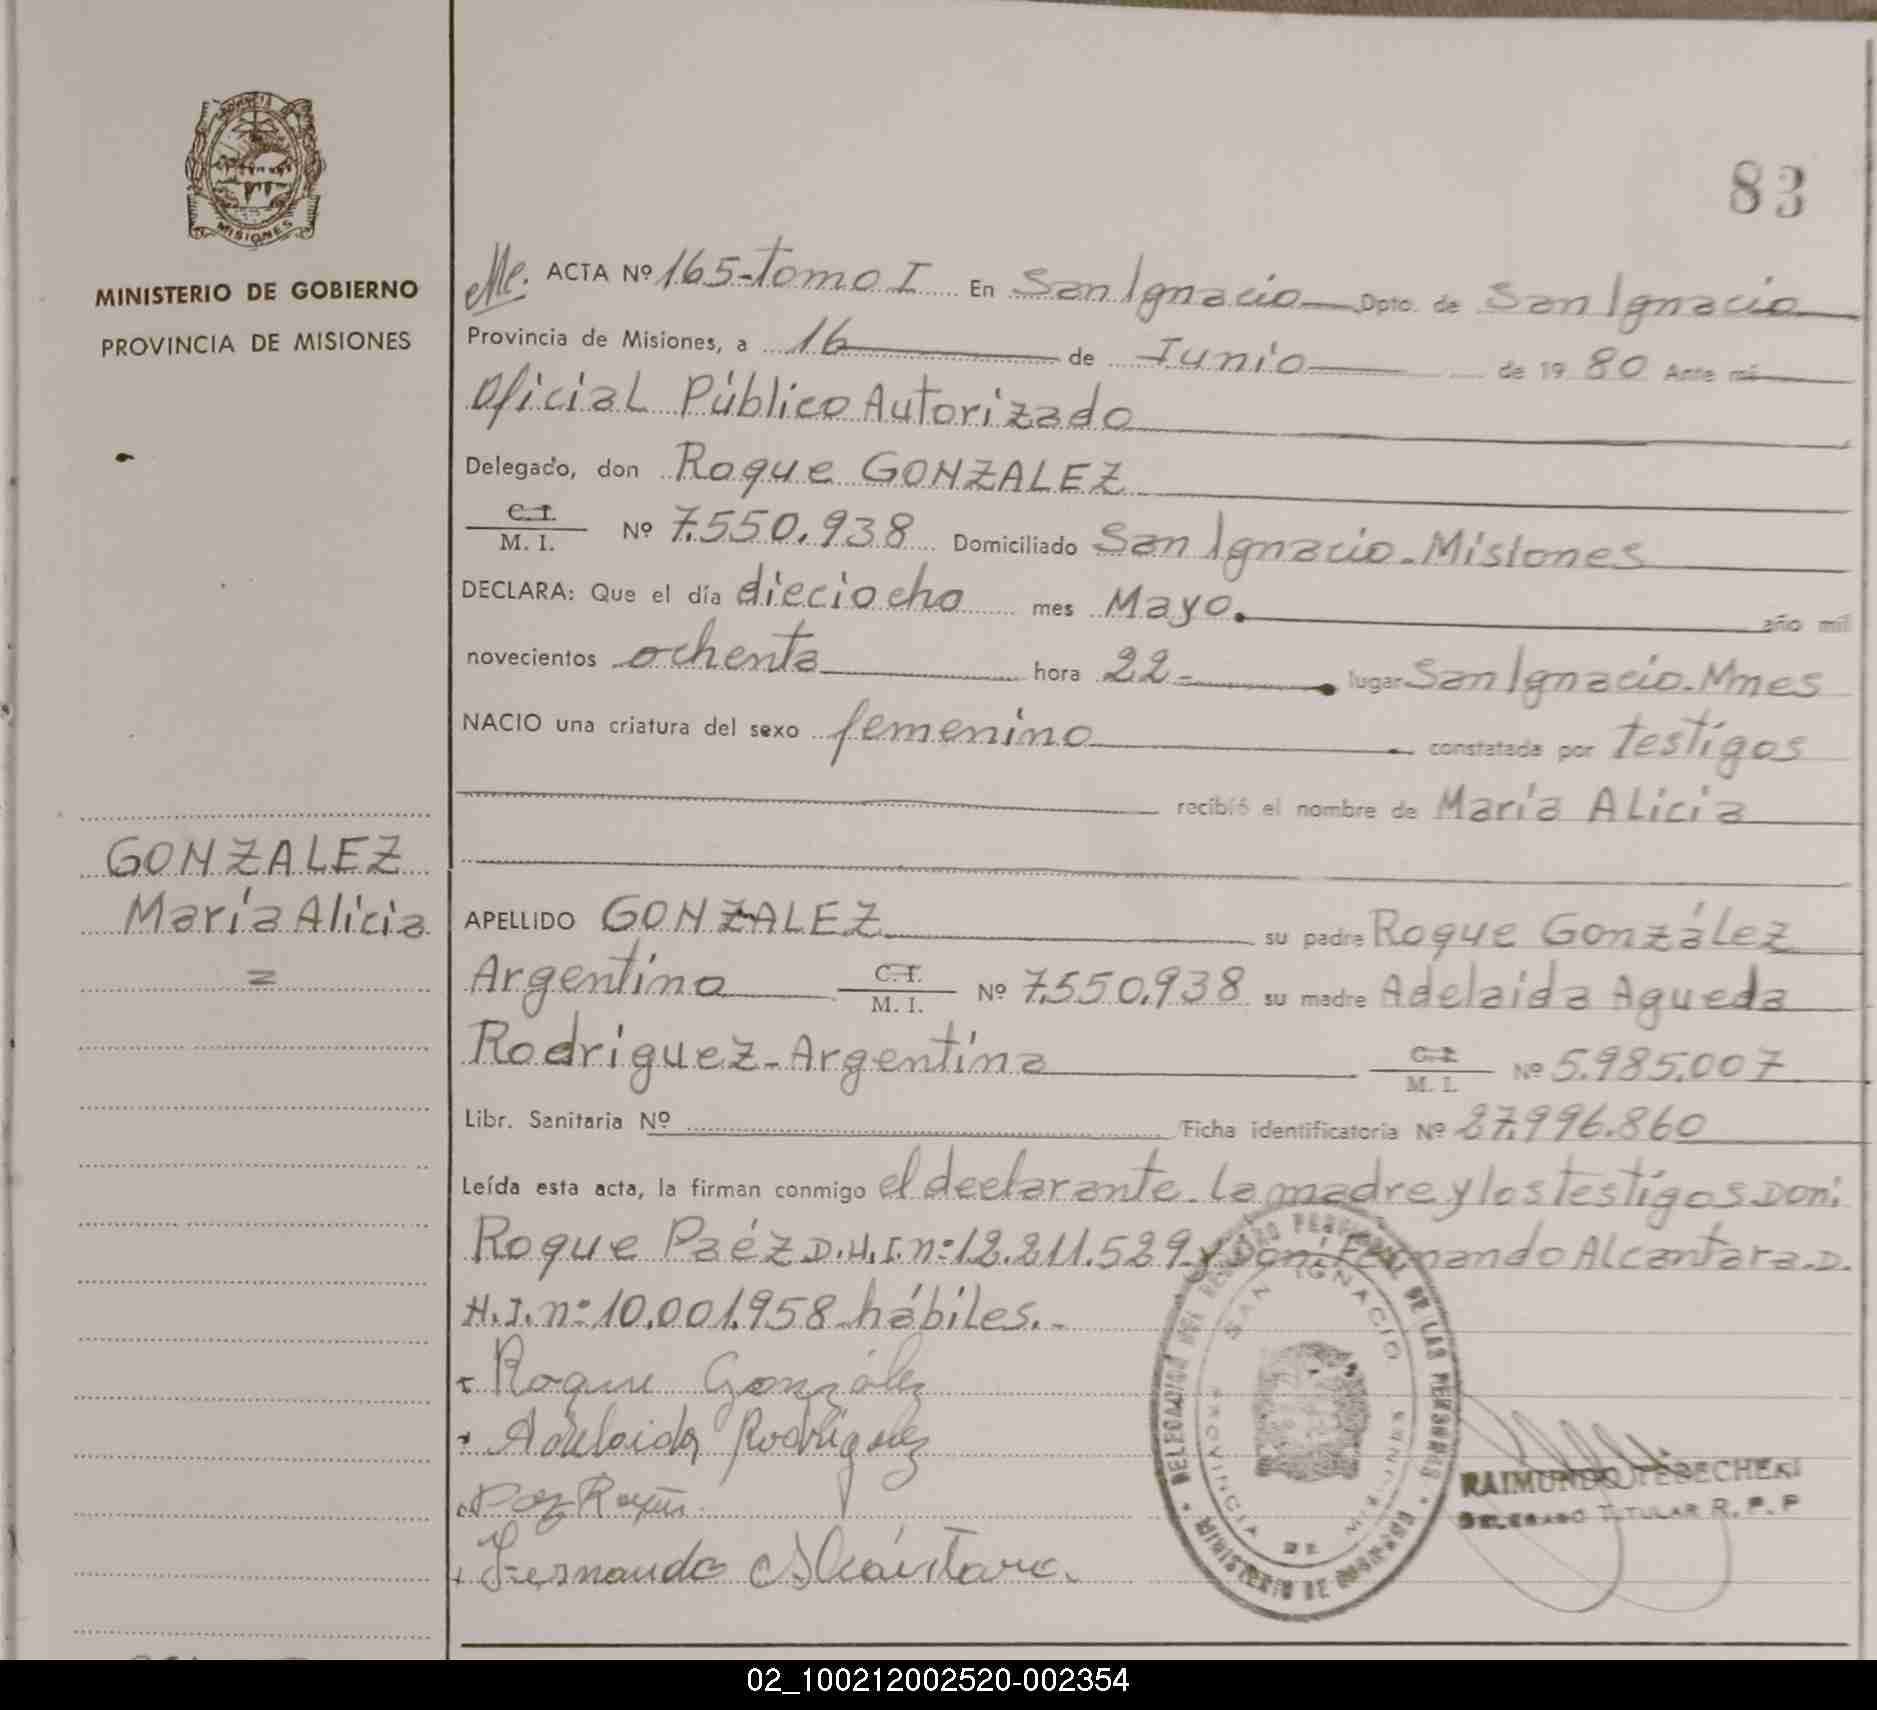 PROVINCIA
MISIONES
MINISTERIO DE GOBIERNO
PROVINCIA DE MISIONES
GONZALEZ
María Alicia
=
83
ACTA Nº 165-Tomo I En San Ignacio Dpto. de San Ignacio
Provincia de Misiones, a 16 de Junio de 1980 Ante mí
Oficial Público Autorizado
Delegado, don Roque GONZALEZ
C.I. M.I. Nº 7.550.938 Domiciliado San Ignacio-Misiones
DECLARA: Que el día dieciocho mes Mayo. año mil
novecientos ochenta hora 22- lugar San Ignacio-Mnes
NACIO una criatura del sexo femenino constatada por testigos
recibió el nombre de María Alicia
APELLIDO GONZALEZ su padre Roque González
Argentino C.I. M.I. Nº 7.550.938 su madre Adelaida Agueda
Rodriguez-Argentina C.I. M.I. Nº 5.985.007
Libr. Sanitaria Nº Ficha identificatoria Nº 27.996.860
Leída esta acta, la firman conmigo el declarante-la madre y los testigos Don:
Roque Paéz D.N.I.nº:12.211.529-y Don: Fernando Alcantara-D.
N.I.nº:10.001.958-hábiles.-
Roque González
Adelaida Rodriguez
Paez Roque
Fernando Alcántara.
DELEGACION DEL REGISTRO PROVINCIAL DE LAS PERSONAS
SAN IGNACIO
PROVINCIA DE MISIONES
MINISTERIO DE GOBIERNO
RAIMUNDO
DELEGADO TITULAR R. P. P
02_100212002520-002354